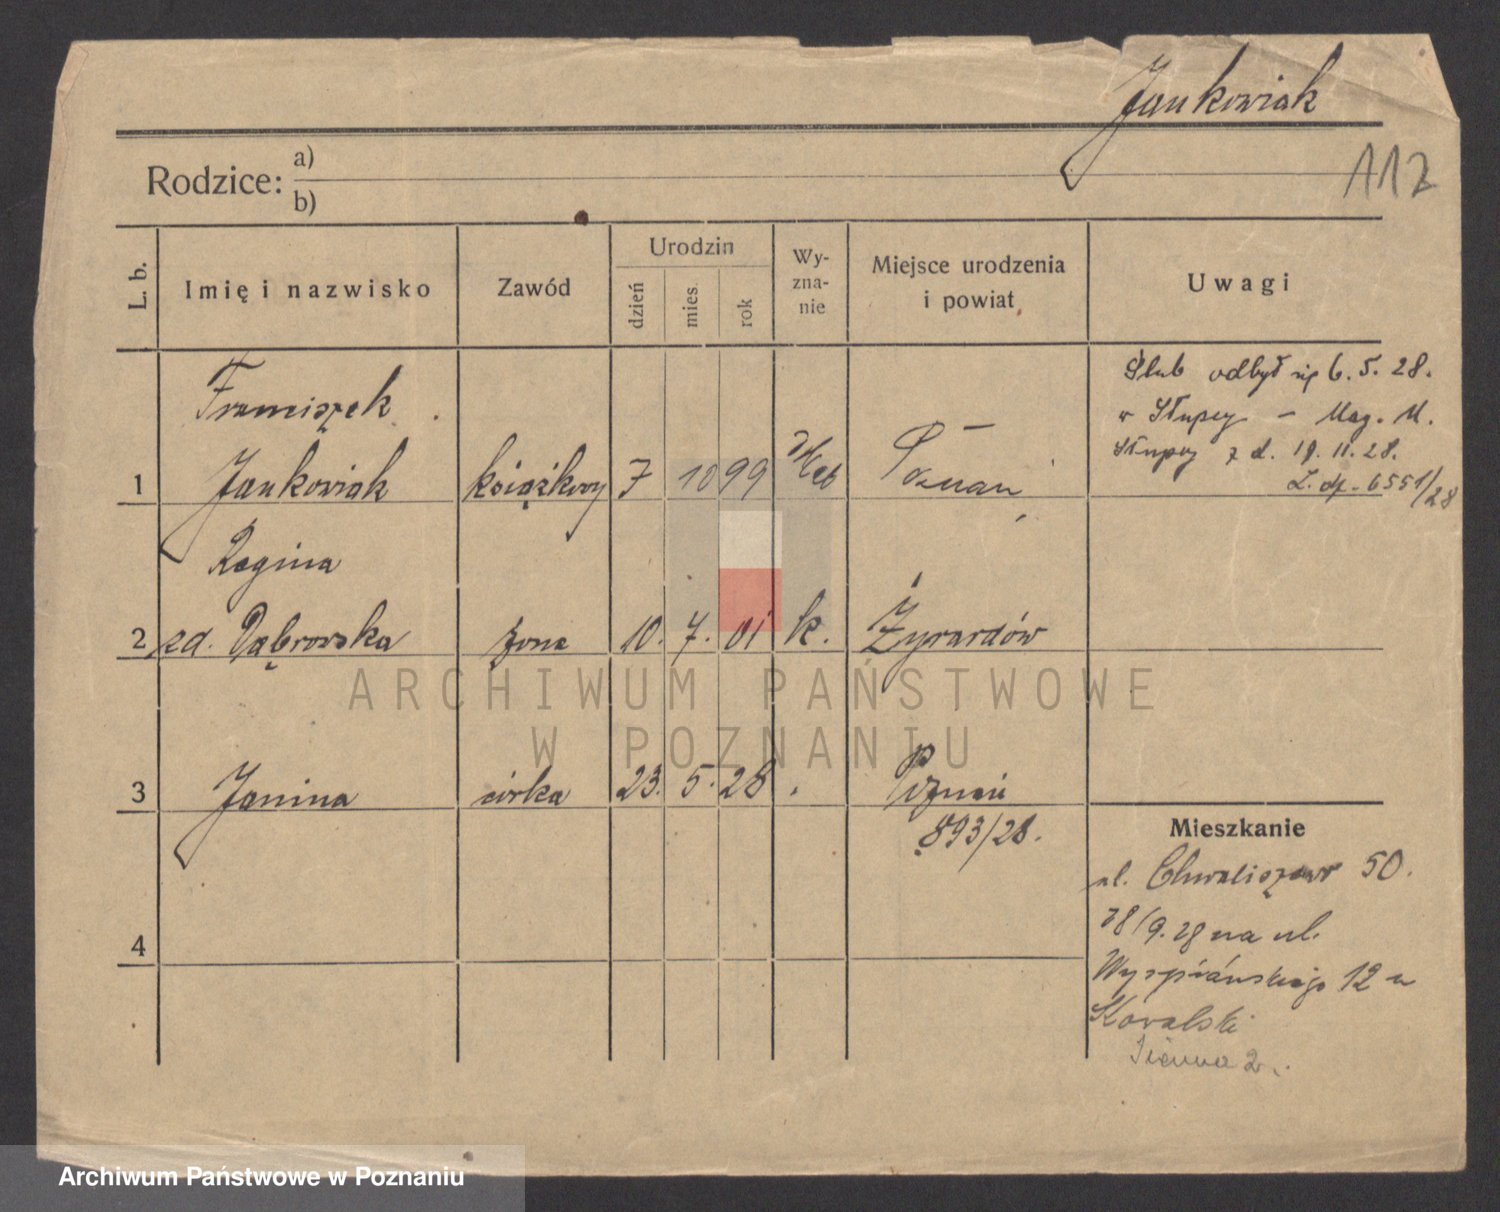 Jankowiak
112
Rodzice:
a)
b)
L. b.
Imię i nazwisko
Zawód
Urodzin
dzień
mies.
rok
Wy-
zna-
nie
Miejsce urodzenia
i powiat
Uwagi
Franciszek
1 Jankowiak książkowy 7 10 99 Poznań
Ślub odbył się 6.5.28.
w Słupcy – Mag. M.
Słupcy z d. 19.11.28.
L. dz. 6551/28
Regina
2 zd. Dąbrowska żona 10. 7. 01 k. Żyrardów
3 Janina córka 23. 5. 28 Poznań
893/28.
4
Mieszkanie
ul. Chwaliszewo 50.
28/9.28 na ul.
Wyspiańskiego 12 u
Kowalski
2
ARCHIWUM PAŃSTWOWE
W POZNANIU
Archiwum Państwowe w Poznaniu